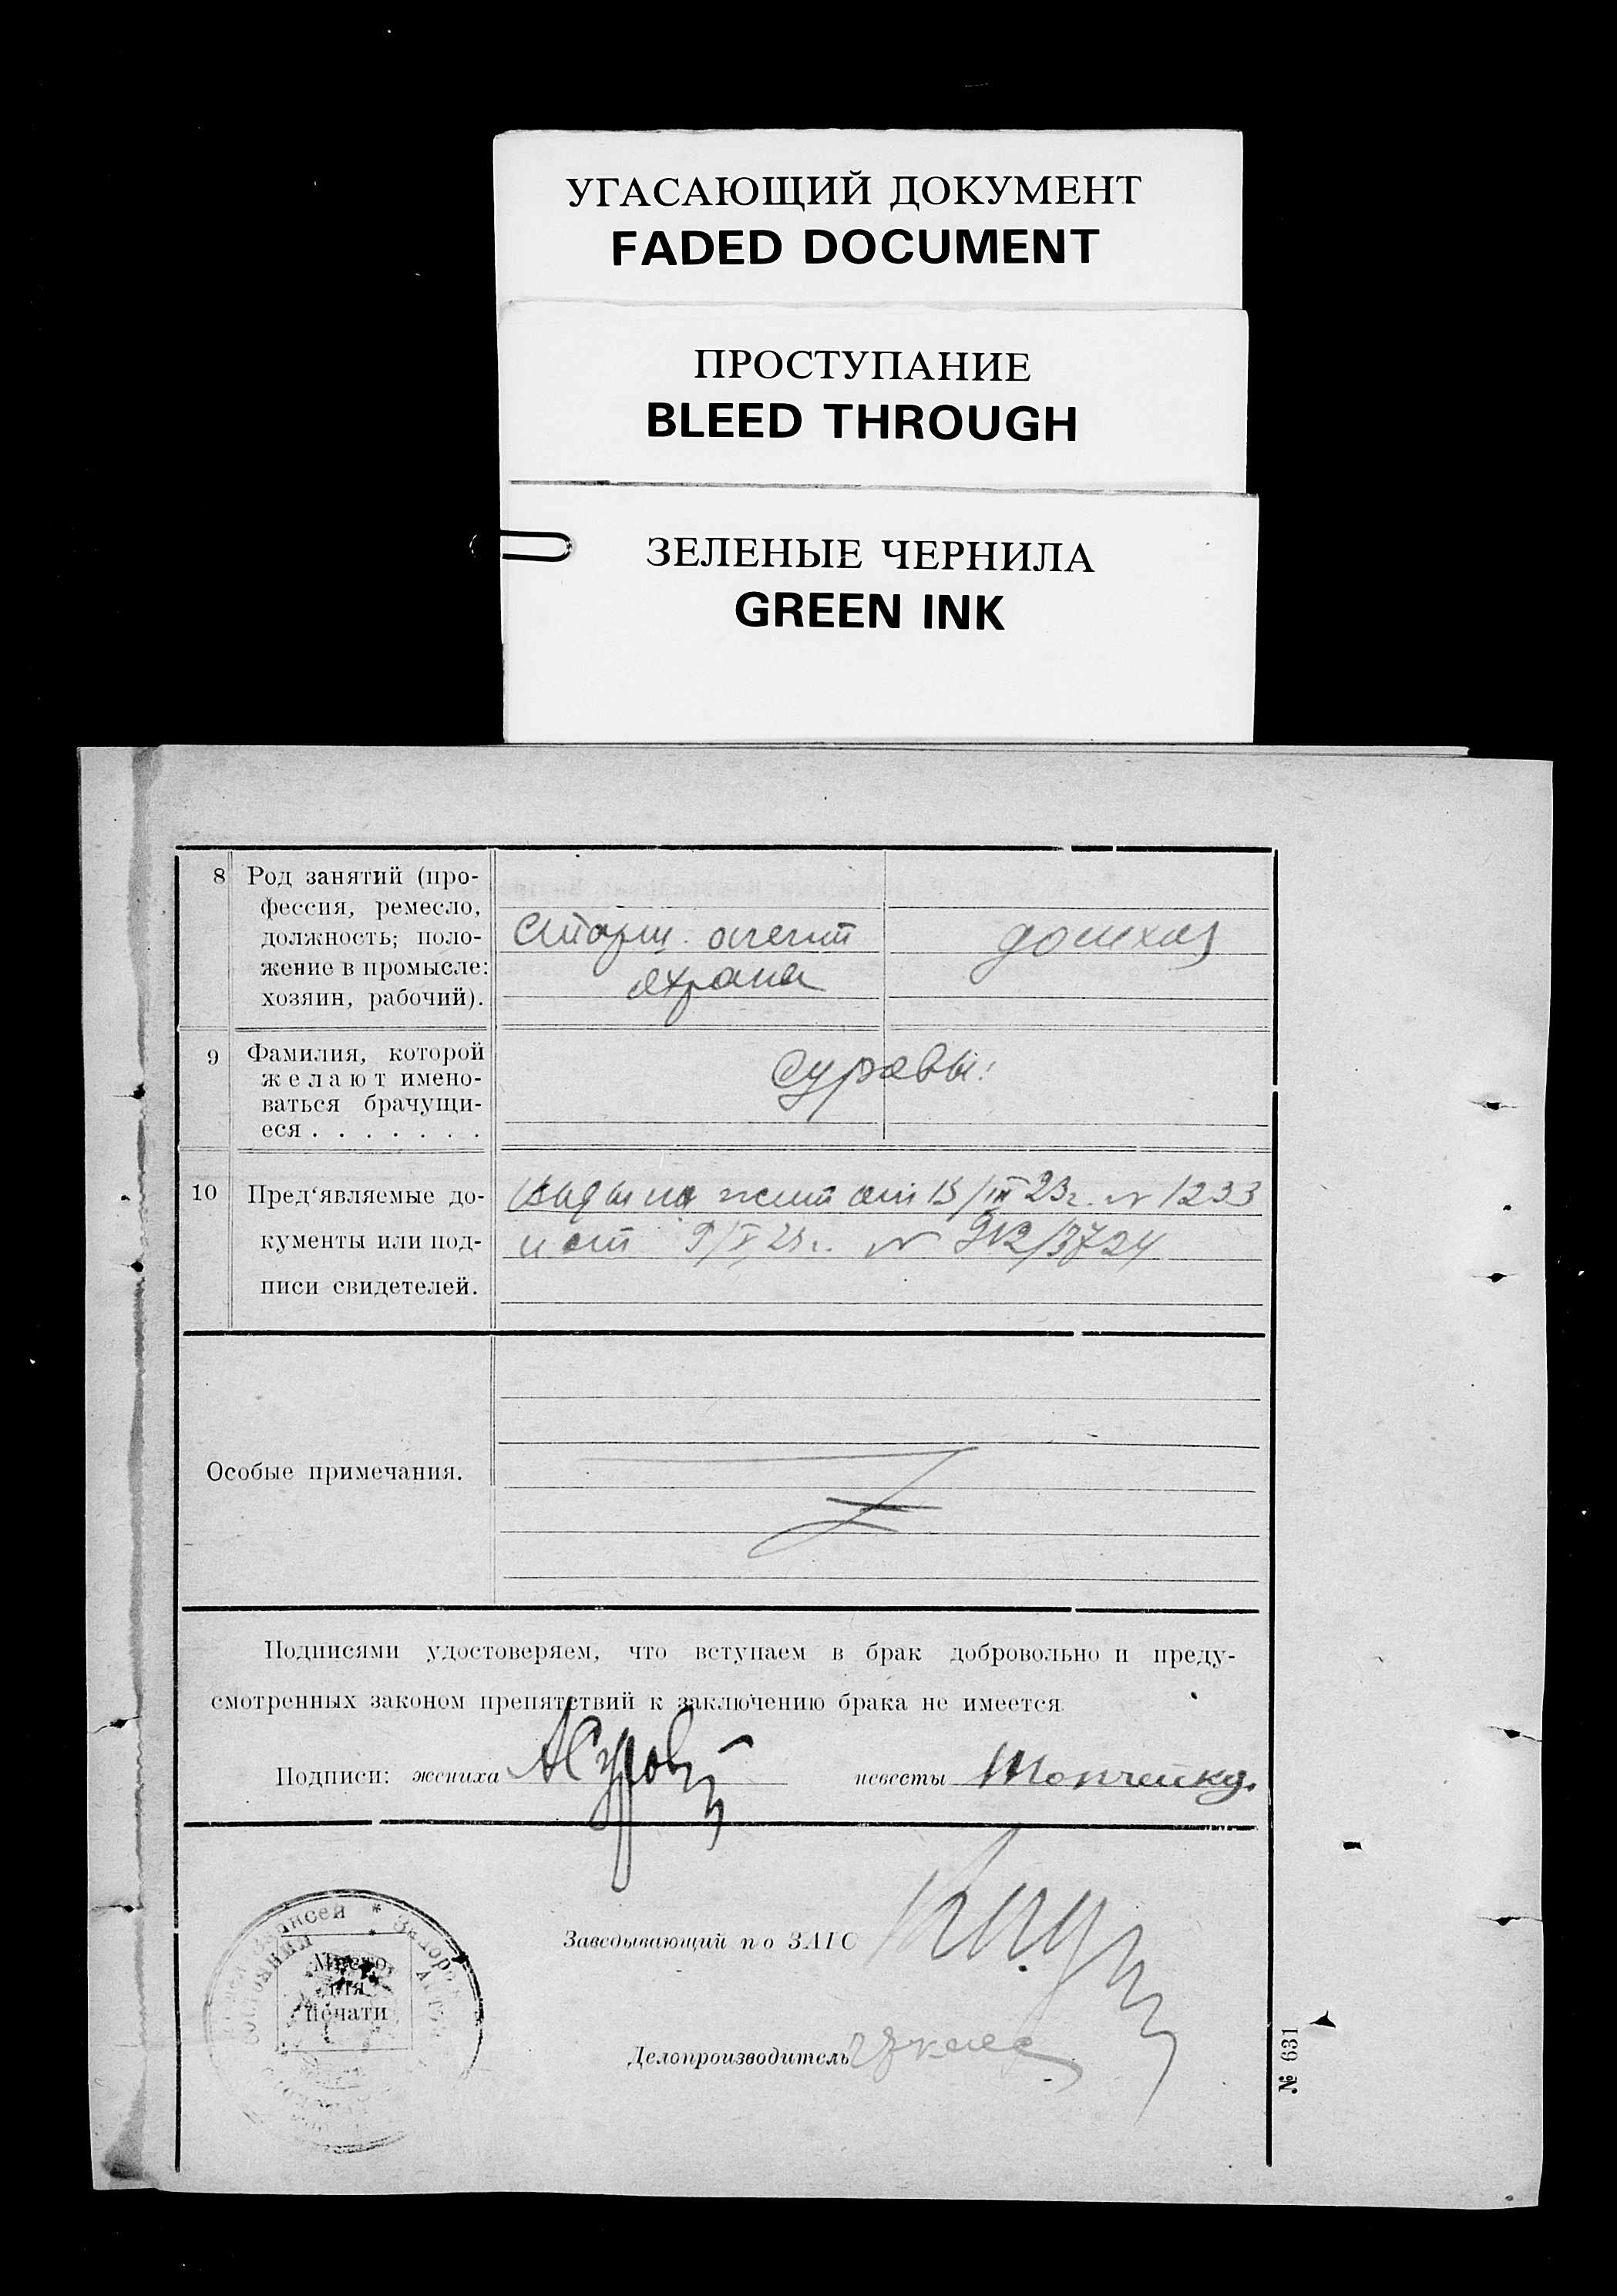 УГАСАЮЩИЙ ДОКУМЕНТ
FADED DOCUMENT
ПРОСТУПАНИЕ
BLEED THROUGH
ЗЕЛЕНЫЕ ЧЕРНИЛА
GREEN INK
8 Род занятий (про-
фессия, ремесло,
должность; поло-
жение в промысле:
хозяин, рабочий).
Старш. агент
охрана
домхоз
9 Фамилия, которой
желают имено-
ваться брачущи-
еся . . . . . . .
Суровы
10 Пред'являемые до-
кументы или под-
писи свидетелей.
Вид на жит от 15/III 23г. № 1233
и от 9/V 23г. № 912/3724
Особые примечания.
Подписями удостоверяем, что вступаем в брак добровольно и преду-
смотренных законом препятствий к заключению брака не имеется.
Подписи: жениха АСуровъ невесты Топчейко
Заведывающий по ЗАГС
Место
для
печати
Делопроизводитель
№ 631